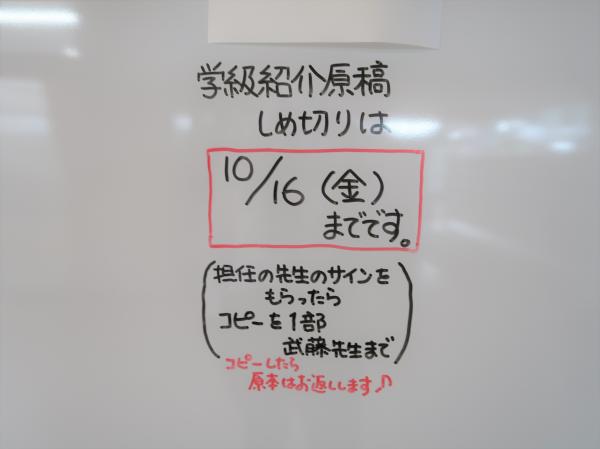 学級紹介原稿
しめ切りは
10/16(金)
までです。
(担任の先生のサインを
もらったら
コピーを1部
武藤先生まで)
コピーしたら
原本はお返しします♪